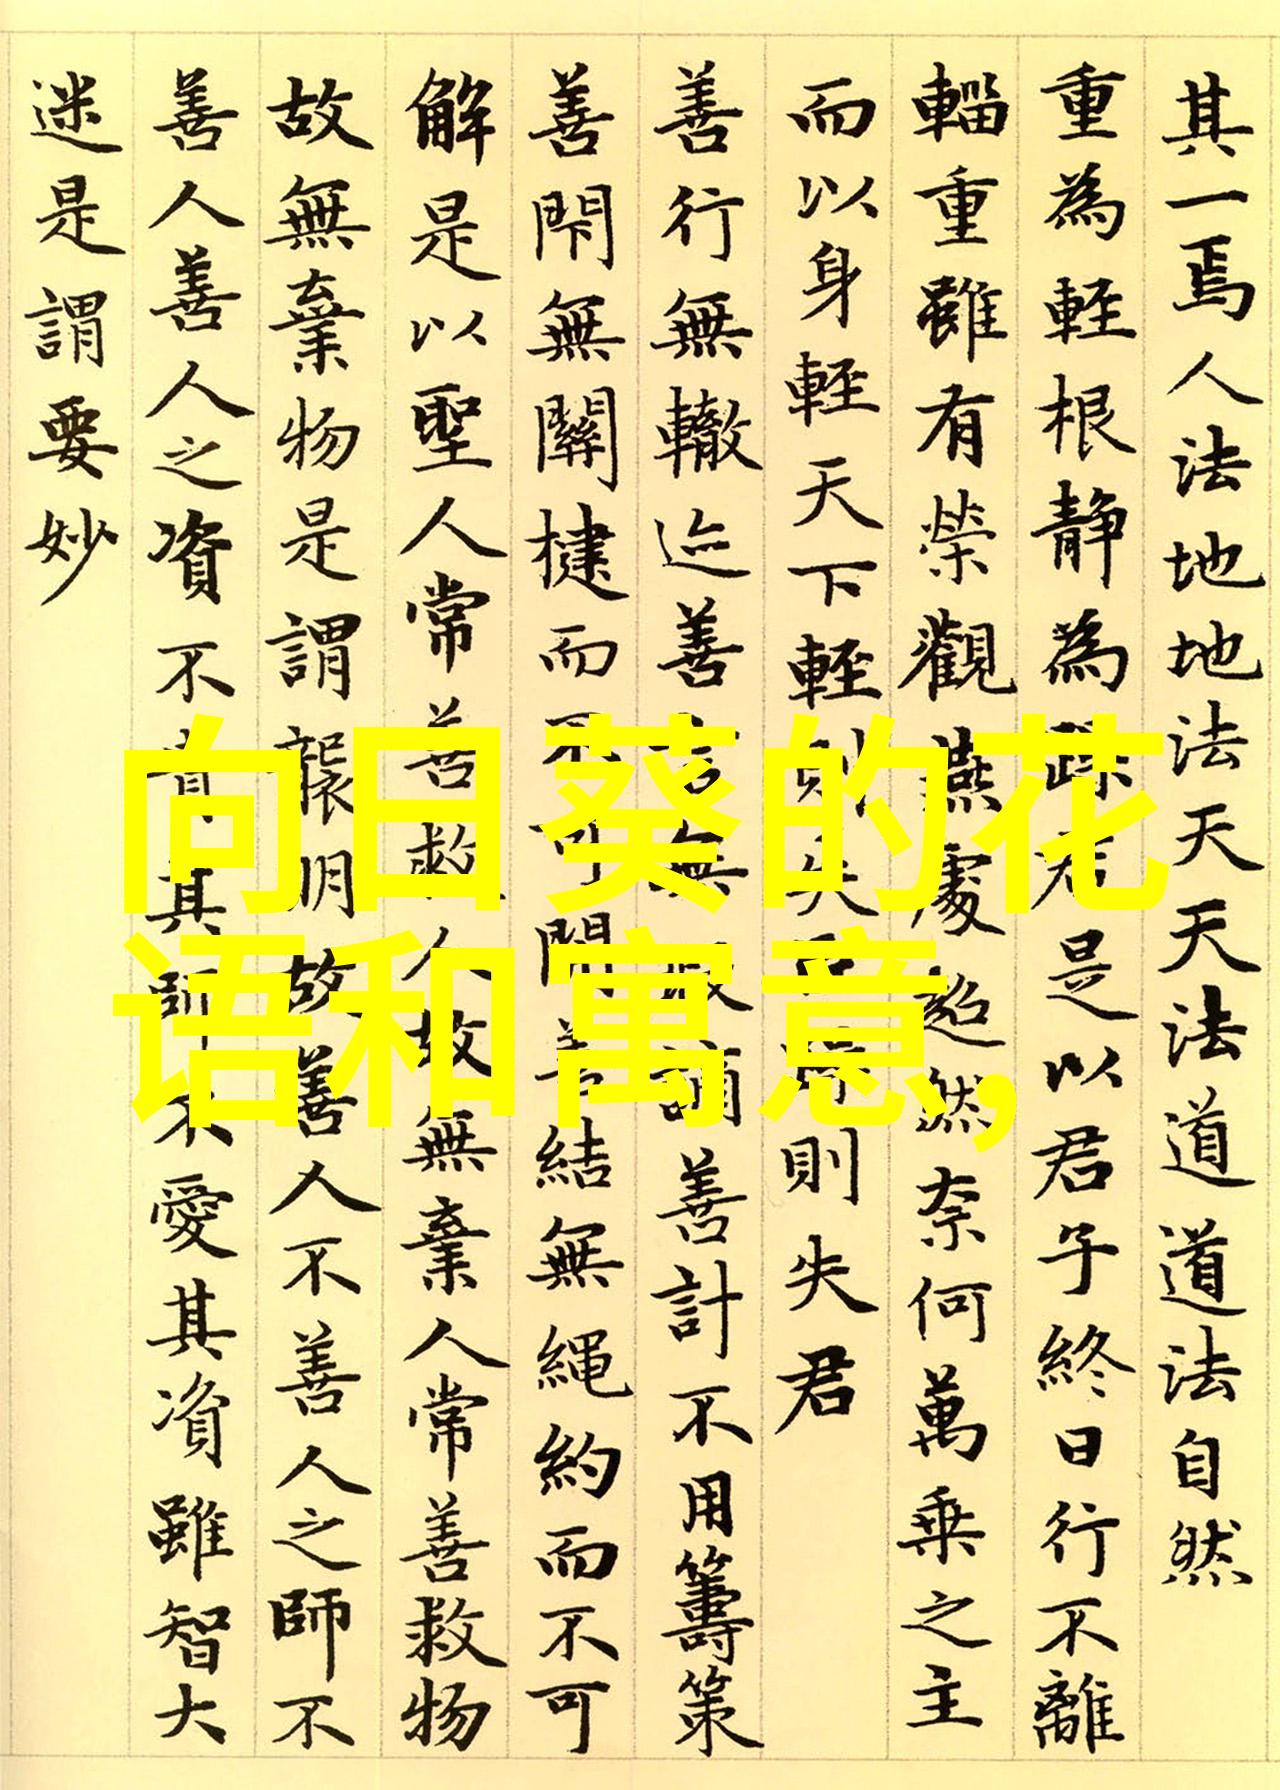 其一焉人法地地法天天法道道法自然
重為輕根靜為躁君是以君子終日行不離
輜重雖有榮觀燕處超然奈何萬乘之主
而以身輕天下輕則失臣躁則失君
善行無轍迹善言無瑕謫善計不用籌策
善閇無關楗而不可開善結無繩約而不可
解是以聖人常善救人故無棄人常善救物
故無棄物是謂襲明故善人不善人之師不
善人善人之資不貴其師不愛其資雖智大
迷是謂要妙
向日葵的花
语和寓意,